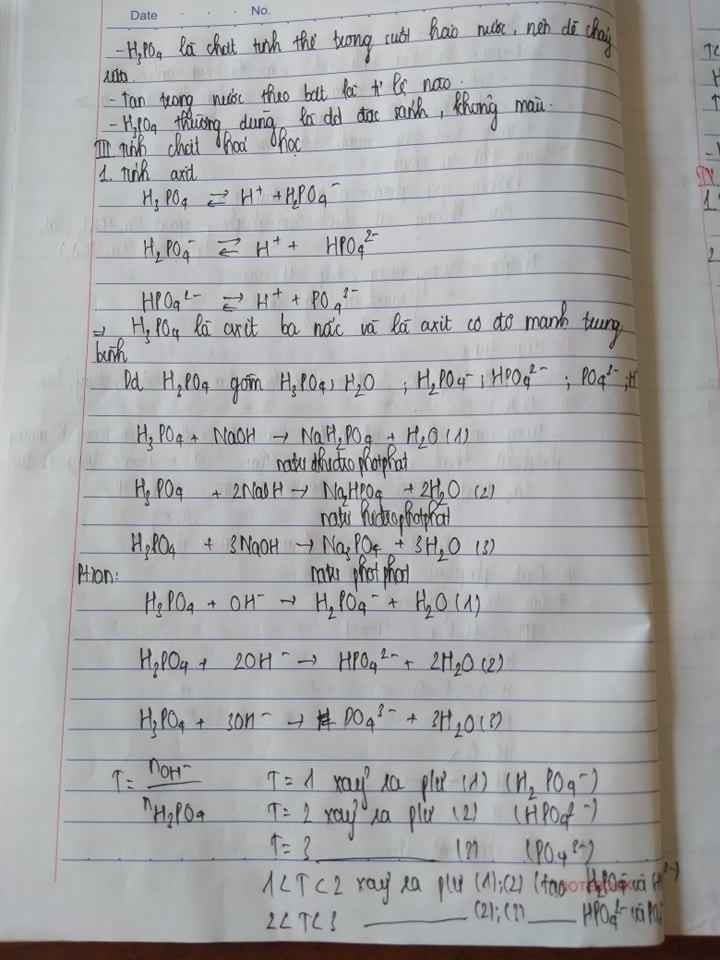 Date . . . No.
- H₃PO₄ là chất tinh thể trong suốt háo nước, nên dễ chảy
rữa.
- Tan trong nước theo bất kì tỉ lệ nào.
- H₃PO₄ thường dùng là dd đặc sánh, không màu.
III Tính chất hoá học
1. Tính axit
H₃PO₄ ⇄ H⁺ + H₂PO₄⁻
H₂PO₄⁻ ⇄ H⁺ + HPO₄²⁻
HPO₄²⁻ ⇄ H⁺ + PO₄³⁻
⇒ H₃PO₄ là axit ba nấc và là axit có độ mạnh trung
bình
Dd H₃PO₄ gồm H₃PO₄, H₂O ; H₂PO₄⁻ ; HPO₄²⁻ ; PO₄³⁻ ; H
H₃PO₄ + NaOH → NaH₂PO₄ + H₂O (1)
natri đihiđro photphat
H₃PO₄ + 2NaOH → Na₂HPO₄ + 2H₂O (2)
natri hiđrophotphat
H₃PO₄ + 3NaOH → Na₃PO₄ + 3H₂O (3)
Pt ion: natri photphat
H₃PO₄ + OH⁻ → H₂PO₄⁻ + H₂O (1)
H₃PO₄ + 2OH⁻ → HPO₄²⁻ + 2H₂O (2)
H₃PO₄ + 3OH⁻ → PO₄³⁻ + 3H₂O (3)
T = nOH⁻ / nH₃PO₄ T = 1 xảy ra pư (1) (H₂PO₄⁻)
T = 2 xảy ra pư (2) (HPO₄²⁻)
T = 3 ______ (3) (PO₄³⁻)
1 < T < 2 xảy ra pư (1); (2) (tạo H₂PO₄⁻ và
2 < T < 3 ______ (2); (3) ___ HPO₄²⁻ và PO₄